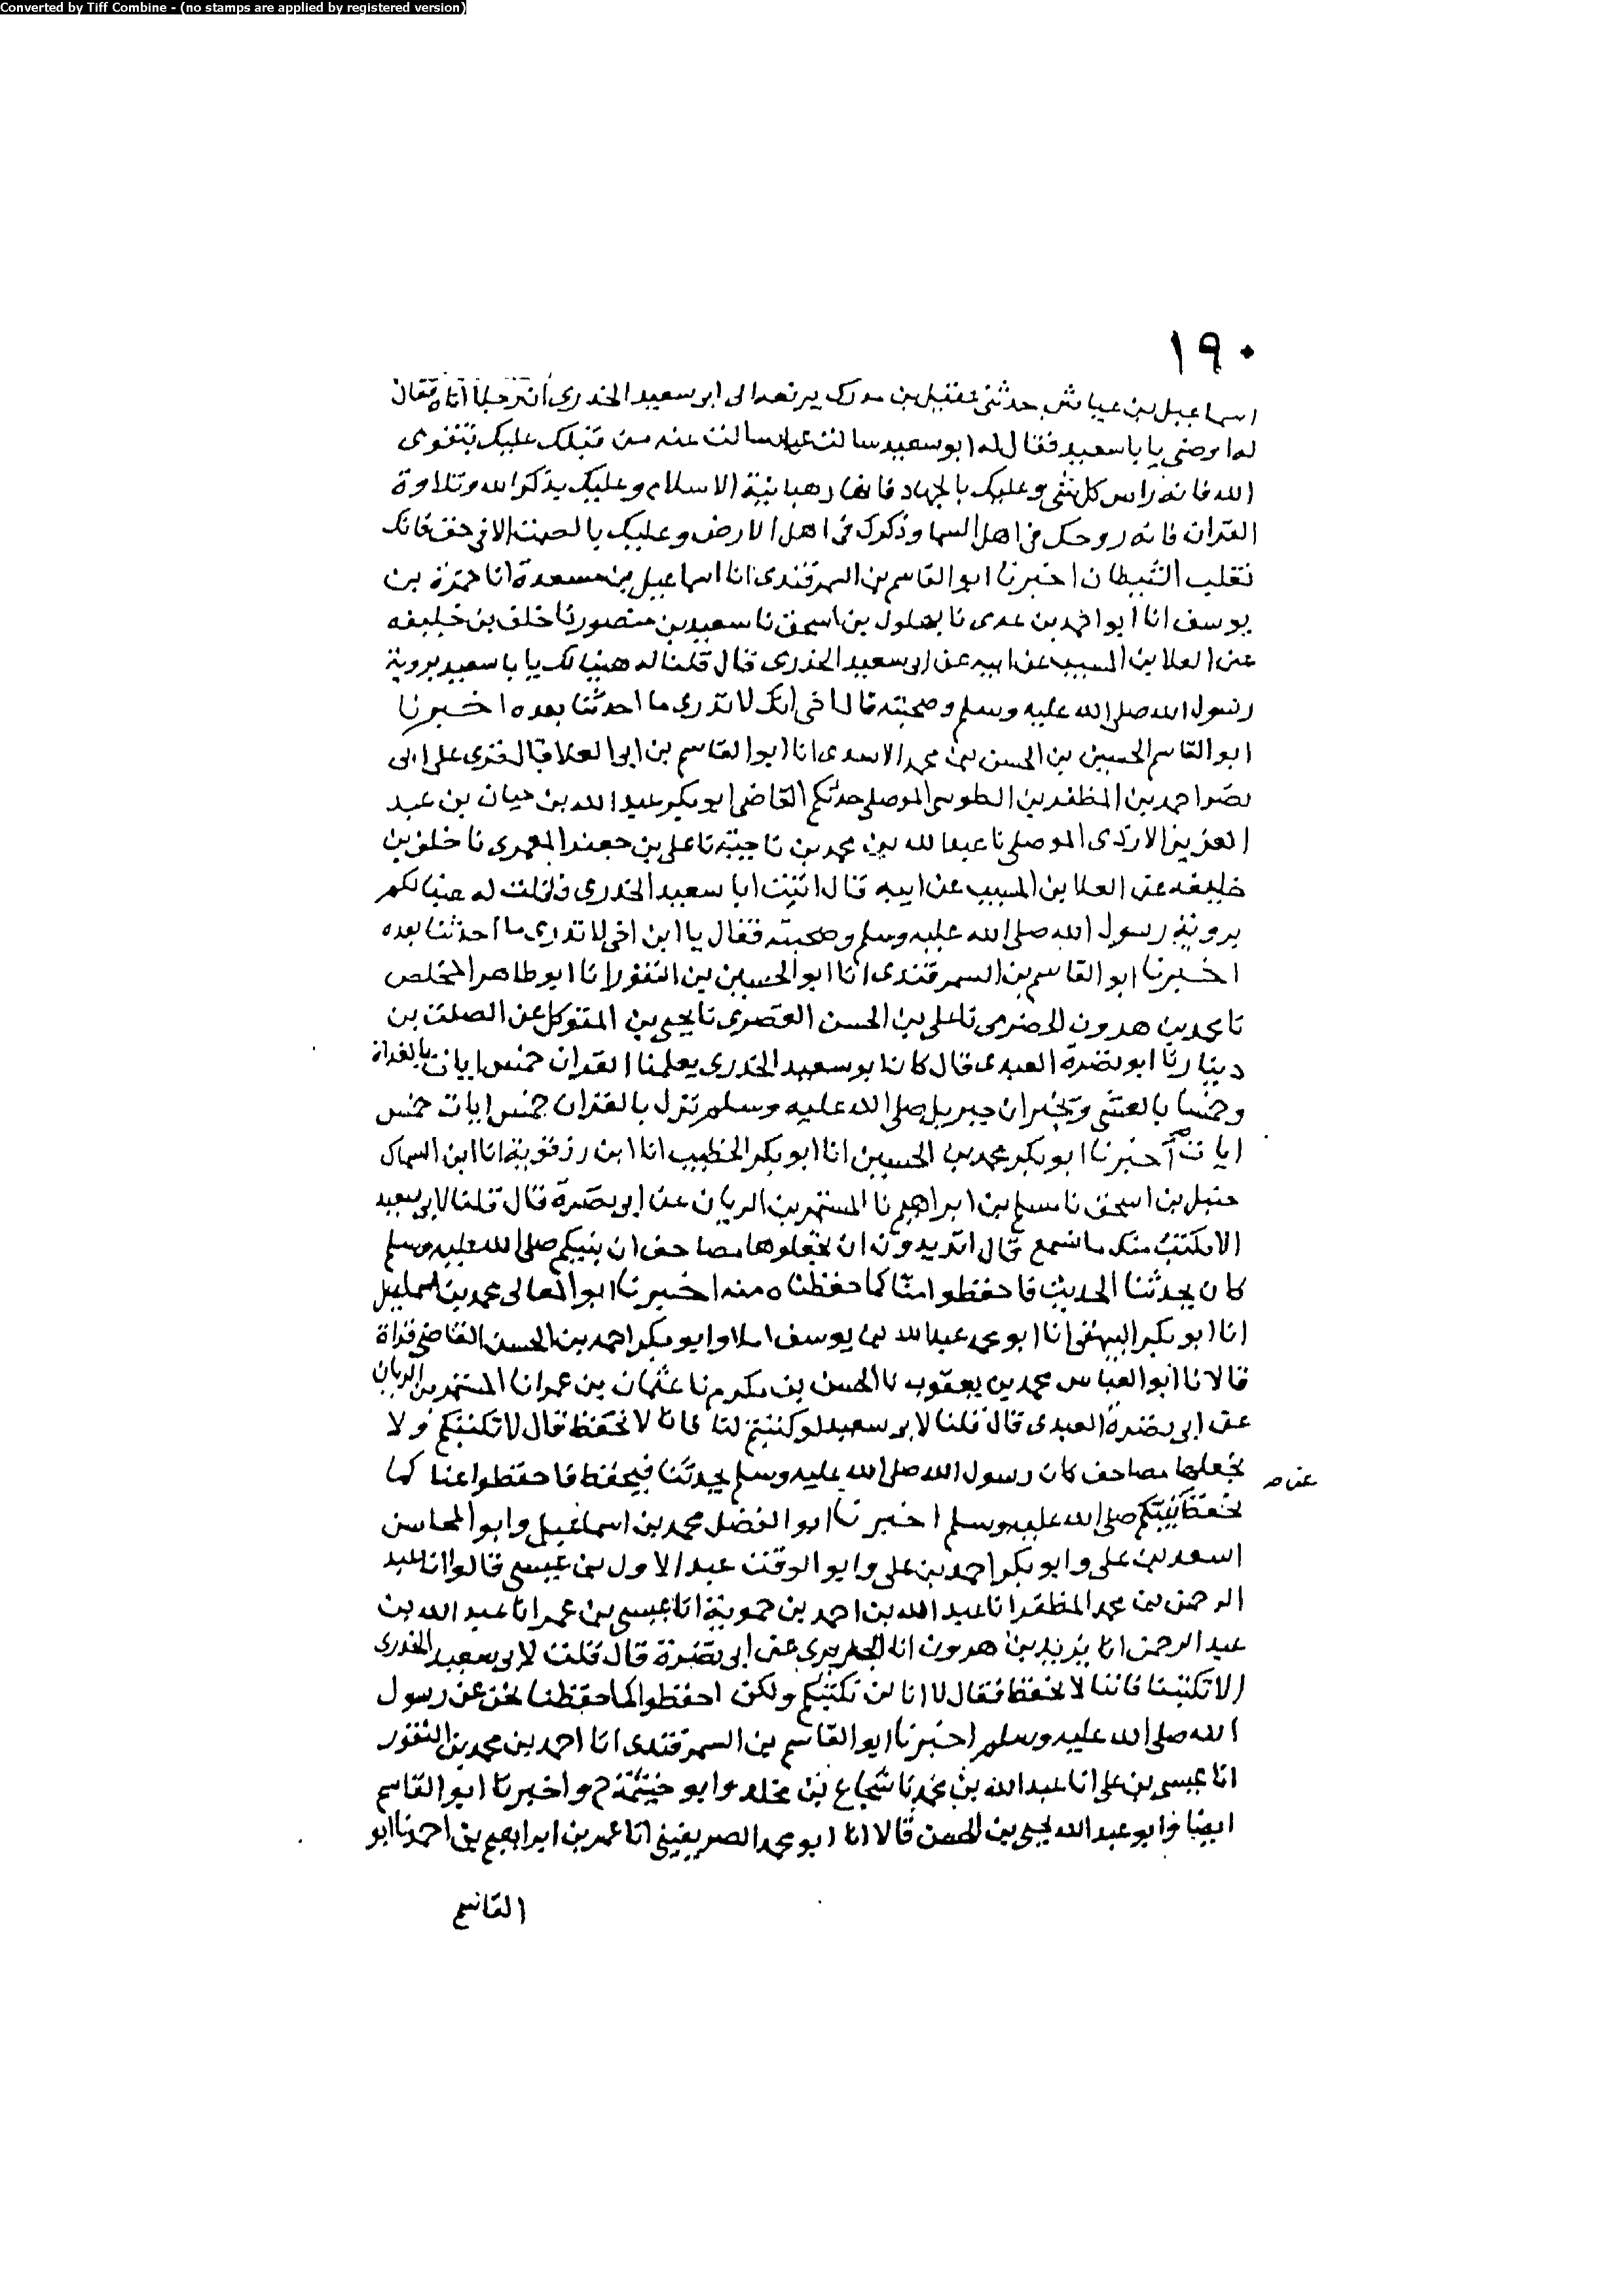 Converted by Tiff Combine - (no stamps are applied by registered version)
١٩٠
اسماعيل بن عياش حدثني عقيل بن مدرك يرفعه الى ابو سعيد الخدري ان رجلا اتاه فقال
له اوصني يا با سعيد فقال له ابو سعيد سالت عما سالت عنه من قبلك عليك بتقوى
الله فانه راس كل شي وعليك بالجهاد فانها رهبانية الاسلام وعليك بذكر الله وتلاوة
القران فانه روحك في اهل السما وذكرك في اهل الارض وعليك بالصمت الا في حق فانك
تغلب الشيطان اخبرنا ابو القاسم بن السمرقندى انا اسماعيل بن مسعدة انا حمزة بن
يوسف انا ابو احمد بن عدى نا بهلول بن اسحق نا سعيد بن منصور نا خلف بن خليفه
عن العلا بن المسيب عن ابيه عن ابى سعيد الخدرى قال قلنا له هنيا لك يا با سعيد بروية
رسول الله صلى الله عليه وسلم وصحبته قال اخى انك لا تدري ما احدثنا بعده اخبرنا
ابو القاسم الحسين بن الحسن بن محمد الاسدى انا ابو القاسم بن ابو العلا قال قرى على ابى
نصر احمد بن المظفر بن الطوسى الموصلى حدثكم القاضى ابو بكر عبد الله بن حيان بن عبد
العزيز الازدى الموصلى نا عبد الله بن محمد بن ناجية نا على بن جعفر المعمرى نا خلف بن
خليفه عن العلا بن المسيب عن ابيه قال اتيت ابا سعيد الخدري فقلت له هنيا لكم
بروية رسول الله صلى الله عليه وسلم وصحبته فقال يا ابن اخى لا تدرى ما احدثنا بعده
اخبرنا ابو القاسم بن السمرقندى انا ابو الحسين بن النقور انا ابو طاهر المخلص
نا محمد بن هرون الحضرمى نا على بن الحسن القصرى نا يحيى بن المتوكل عن الصلت بن
دينار نا ابو نضرة العبدى قال كان ابو سعيد الخدرى يعلمنا القران خمس ايات بالغداة
وخمسا بالعشى ويخبر ان جبريل صلى الله عليه وسلم نزل بالقران خمس ايات خمس
ايات اخبرنا ابو بكر محمد بن الحسين انا ابو بكر الخطيب انا ابن رزقوية انا ابن السماك
حنبل بن اسحق نا مسلم بن ابراهيم نا المستمر بن الريان عن ابى نضرة قال قلنا لابى سعيد
الا نكتب منك ما نسمع قال اتريدون ان تجعلوها مصاحف ان نبيكم صلى الله عليه وسلم
كان يحدثنا الحديث فاحفظوا منا كما حفظناه منه اخبرنا ابو المعالى محمد بن اسماعيل
انا ابو بكر البيهقى انا ابو محمد عبد الله بن يوسف املا وابو بكر احمد بن الحسن القاضى قراة
قالا نا ابو العباس محمد بن يعقوب نا الحسن بن مكرم نا عثمان بن عمر انا المستمر بن الريان
عن ابى نضرة العبدى قال قلنا لابى سعيد لو كتبتم لنا فانا لا نحفظ قال لا نكتبكم ولا
نجعلها مصاحف كان رسول الله صلى الله عليه وسلم يحدثنا فيحفظ فاحفظوا عنا كما
عن صـ
نحفظ نبيكم صلى الله عليه وسلم اخبرنا ابو الفضل محمد بن اسماعيل وابو المحاسن
اسعد بن على وابو بكر احمد بن على وابو الوقت عبد الاول بن عيسى قالوا انا عبد
الرحمن بن محمد المظفر انا عبد الله بن احمد بن حموية انا عيسى بن عمر انا عبد الله بن
عبد الرحمن انا يزيد بن هرون انا الجريرى عن ابى نضرة قال قلت لابى سعيد الخدرى
الا تكتبنا فاننا لا نحفظ فقال لا انا لن نكتبكم ولكن احفظوا كما حفظنا نحن عن رسول
الله صلى الله عليه وسلم اخبرنا ابو القاسم بن السمرقندى انا احمد بن محمد بن النقور
انا عيسى بن على انا عبد الله بن محمد نا شجاع بن مخلد وابو خيثمة ح واخبرنا ابو القاسم
ايضا وابو عبد الله يحيى بن الحسن قالا انا ابو محمد الصريفينى انا عمر بن ابراهيم بن احمد نا ابو
القاسم